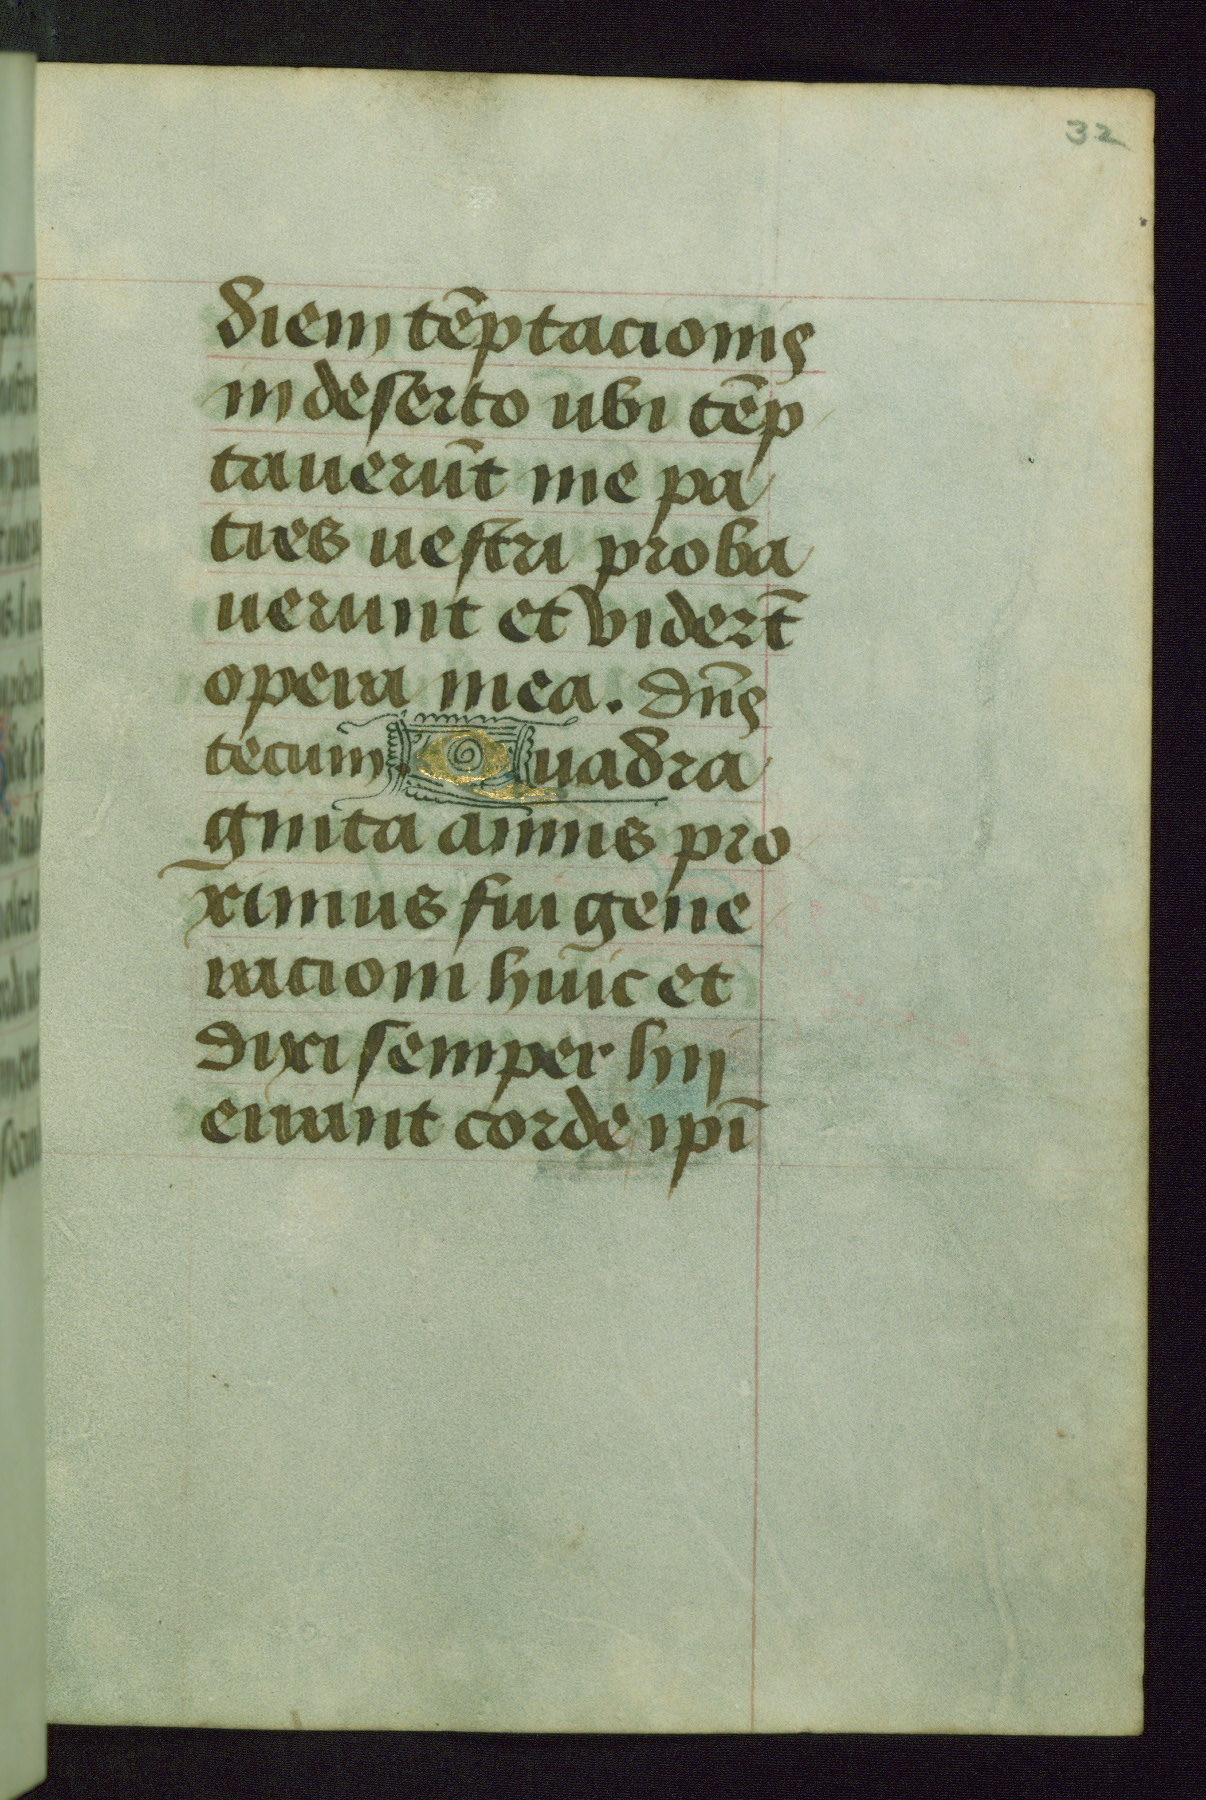 32
diem tēptacionis
in deserto ubi tēp
tauerūt me pa
tres uestri proba
uerunt et viderūt
opera mea. Dn̄s
tecum. Quadra
ginta annis pro
ximus fui gene
racioni huic et
dixi semper hij
errant corde ipī